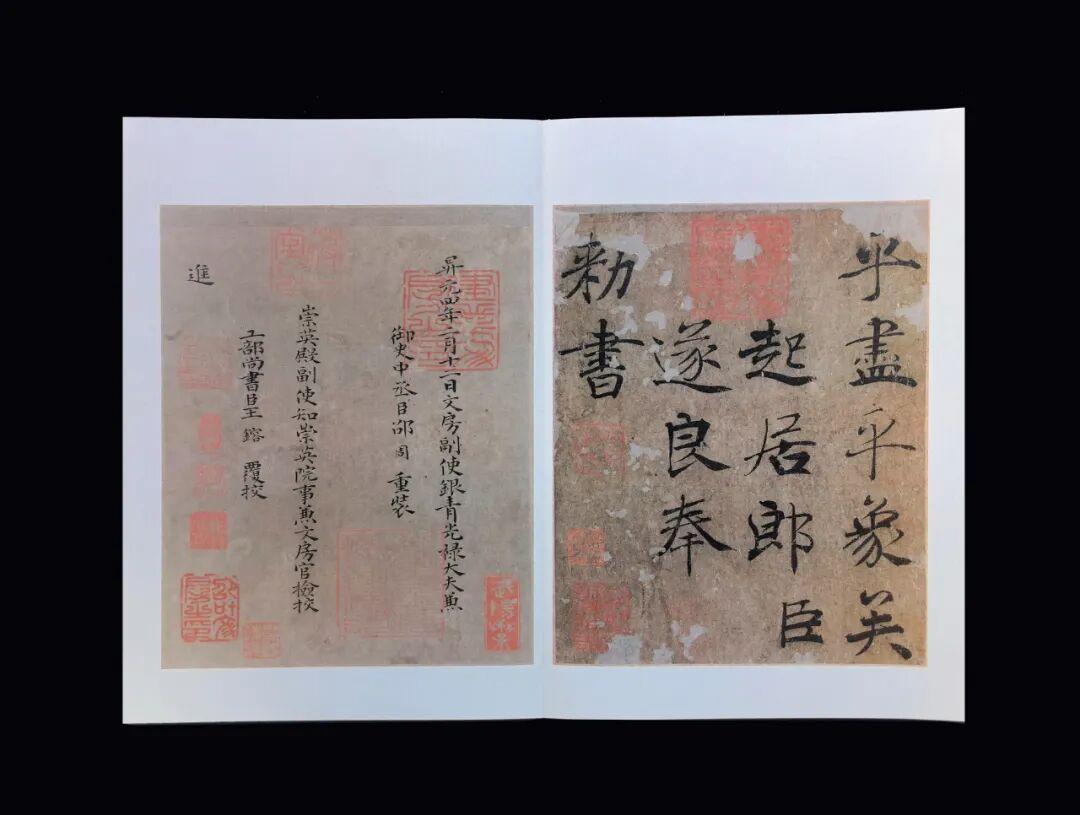 乎盡乎象矣
起居郎臣
遂良奉
勑書
昇元四年二月十二日文房副使銀青光祿大夫兼
御史中丞臣邵周重裝
崇英殿副使知崇英院事兼文房官撿挍
工部尚書臣王鎔覆挍
進